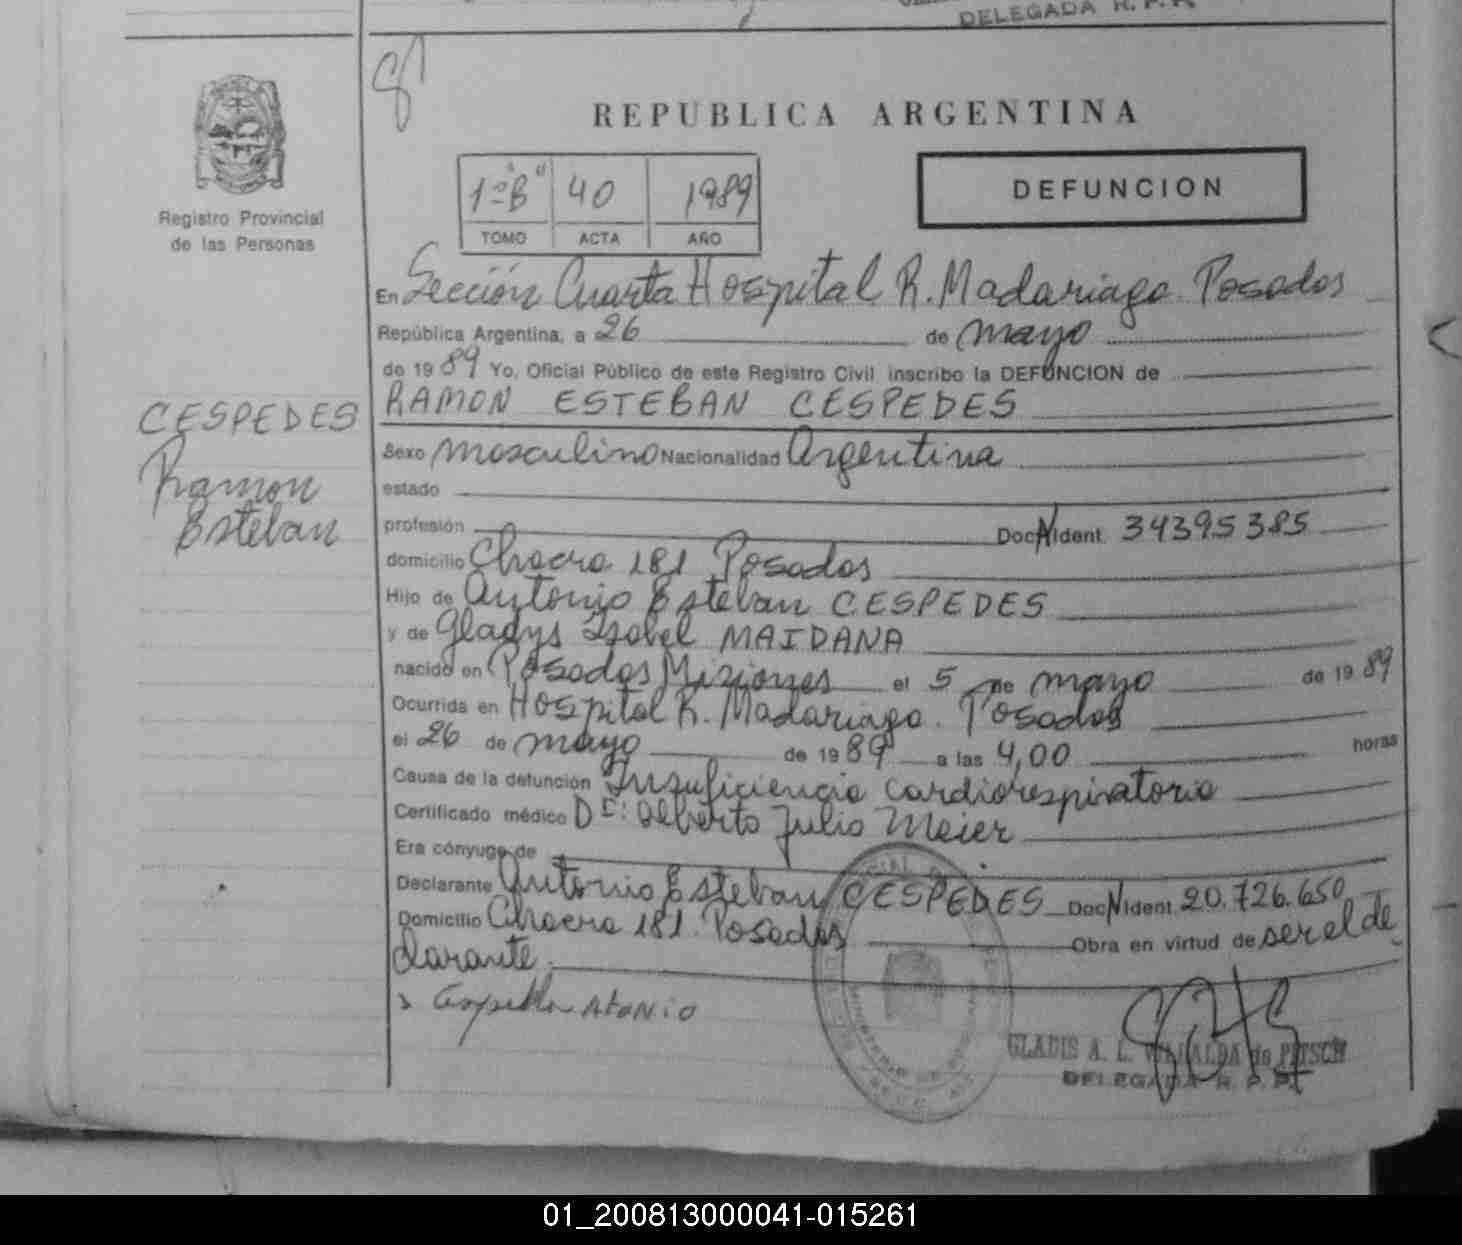 DELEGADA R. P. P.
REPUBLICA ARGENTINA
Registro Provincial
de las Personas
1º "B" 40 1989
TOMO ACTA AÑO
DEFUNCION
En Sección Cuarta Hospital R. Madariaga. Posadas
República Argentina, a 26 de mayo
de 1989 Yo, Oficial Público de este Registro Civil inscribo la DEFUNCION de
RAMON ESTEBAN CESPEDES
CESPEDES
Ramon
Esteban
Sexo masculino Nacionalidad Argentina
estado
profesión Doc. N Ident. 34395385
domicilio Chacra 181 Posadas
Hijo de Antonio Esteban CESPEDES
y de Gladys Isabel MAIDANA
nacido en Posadas Misiones el 5 de mayo de 1989
Ocurrida en Hospital R. Madariaga. Posadas
el 26 de mayo de 1989 a las 4,00 horas
Causa de la defunción Insuficiencia cardiorespiratoria
Certificado médico Dr: Alberto Julio Meier
Era cónyuge de
Declarante Antonio Esteban CESPEDES Doc. N Ident. 20.726.650
Domicilio Chacra 181. Posadas Obra en virtud de ser el de
clarante.
GLADIS A. L. de
DELEGADA R. P. P.
01_200813000041-015261